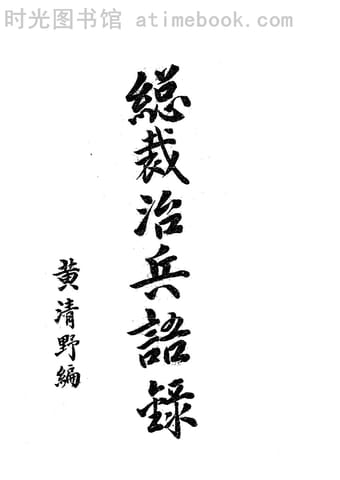 时光图书馆 atimebook.com
総裁治兵語錄
黄清野編